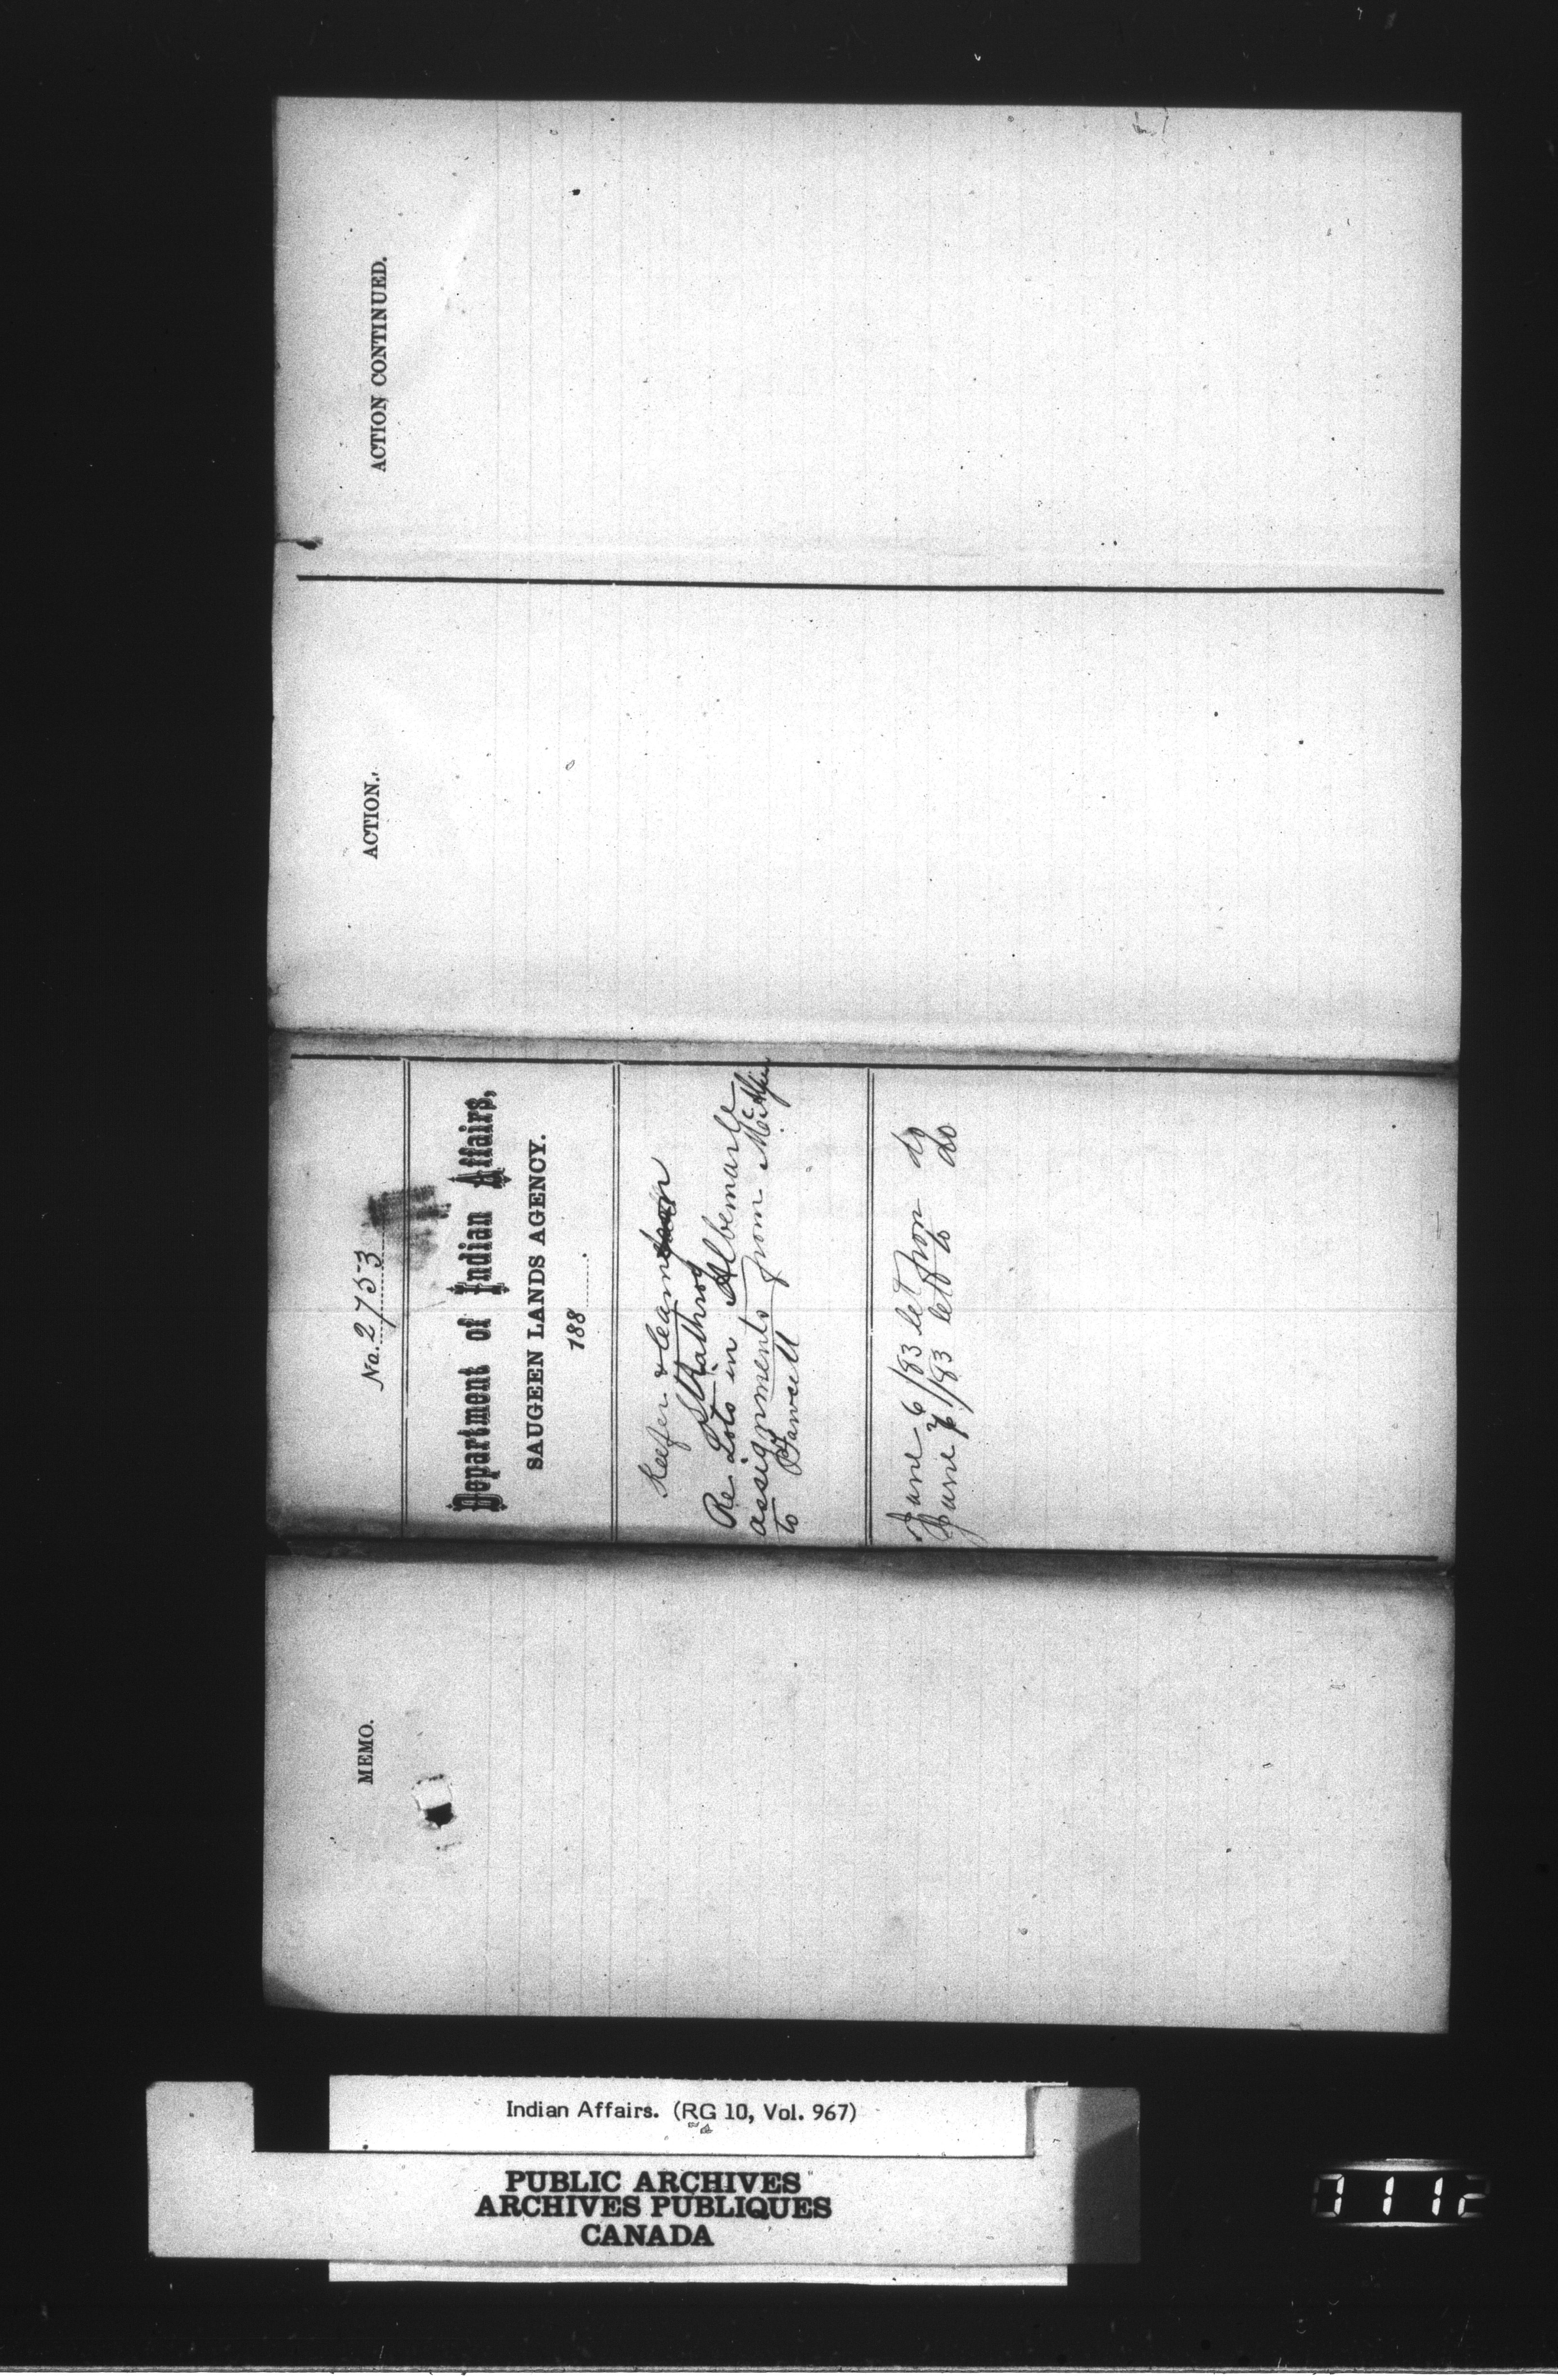 ACTION CONTINUED.
ACTION.
No. 2753
Department of Indian Affairs,
SAUGEEN LANDS AGENCY.
188
Keefer &
Strathroy
Re Lots in Albemarle
assignments from
to Fawcett
June 6/83 let from do
June 7/83 let to do
MEMO.
Indian Affairs. (RG 10, Vol. 967)
PUBLIC ARCHIVES
ARCHIVES PUBLIQUES
CANADA
1112